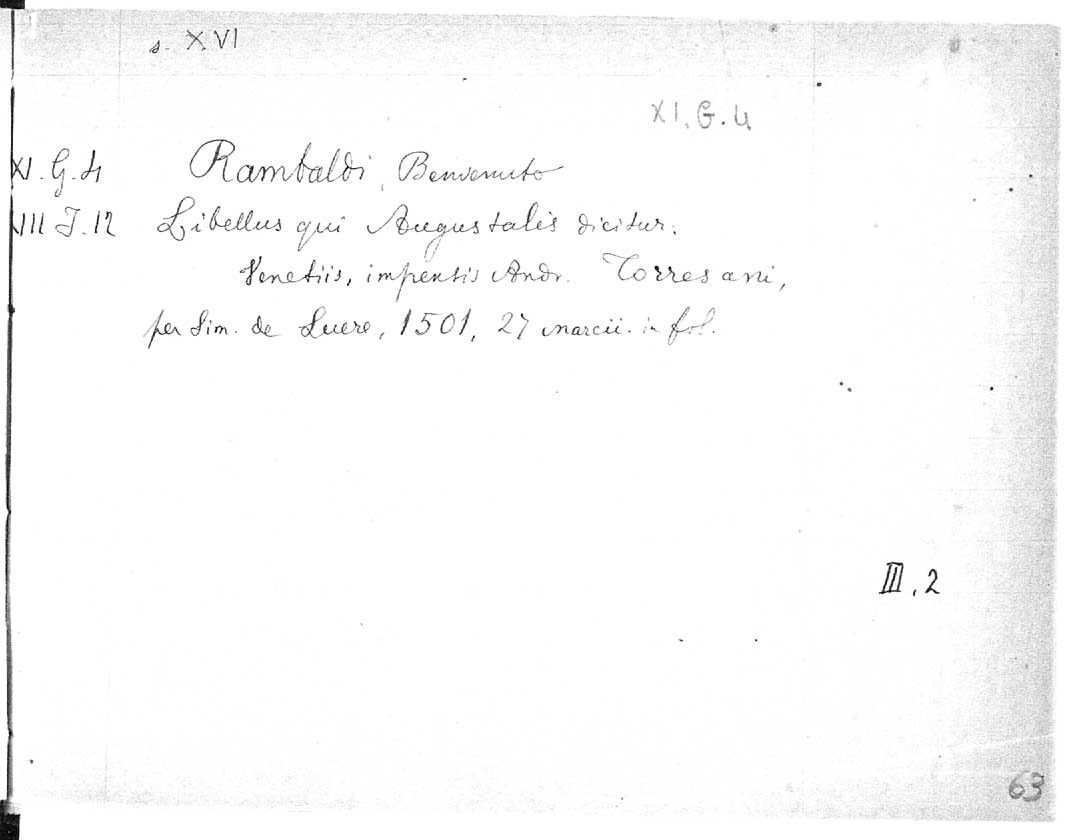 s. XVI
XI.G.4
XI.G.4 Rambaldi, Benvenuto
VIII J.12 Libellus qui Augustalis dicitur.
Venetiis, impensis Andr. Torresani,
per Sim. de Luere, 1501, 27 marcii. in fol.
III.2
63